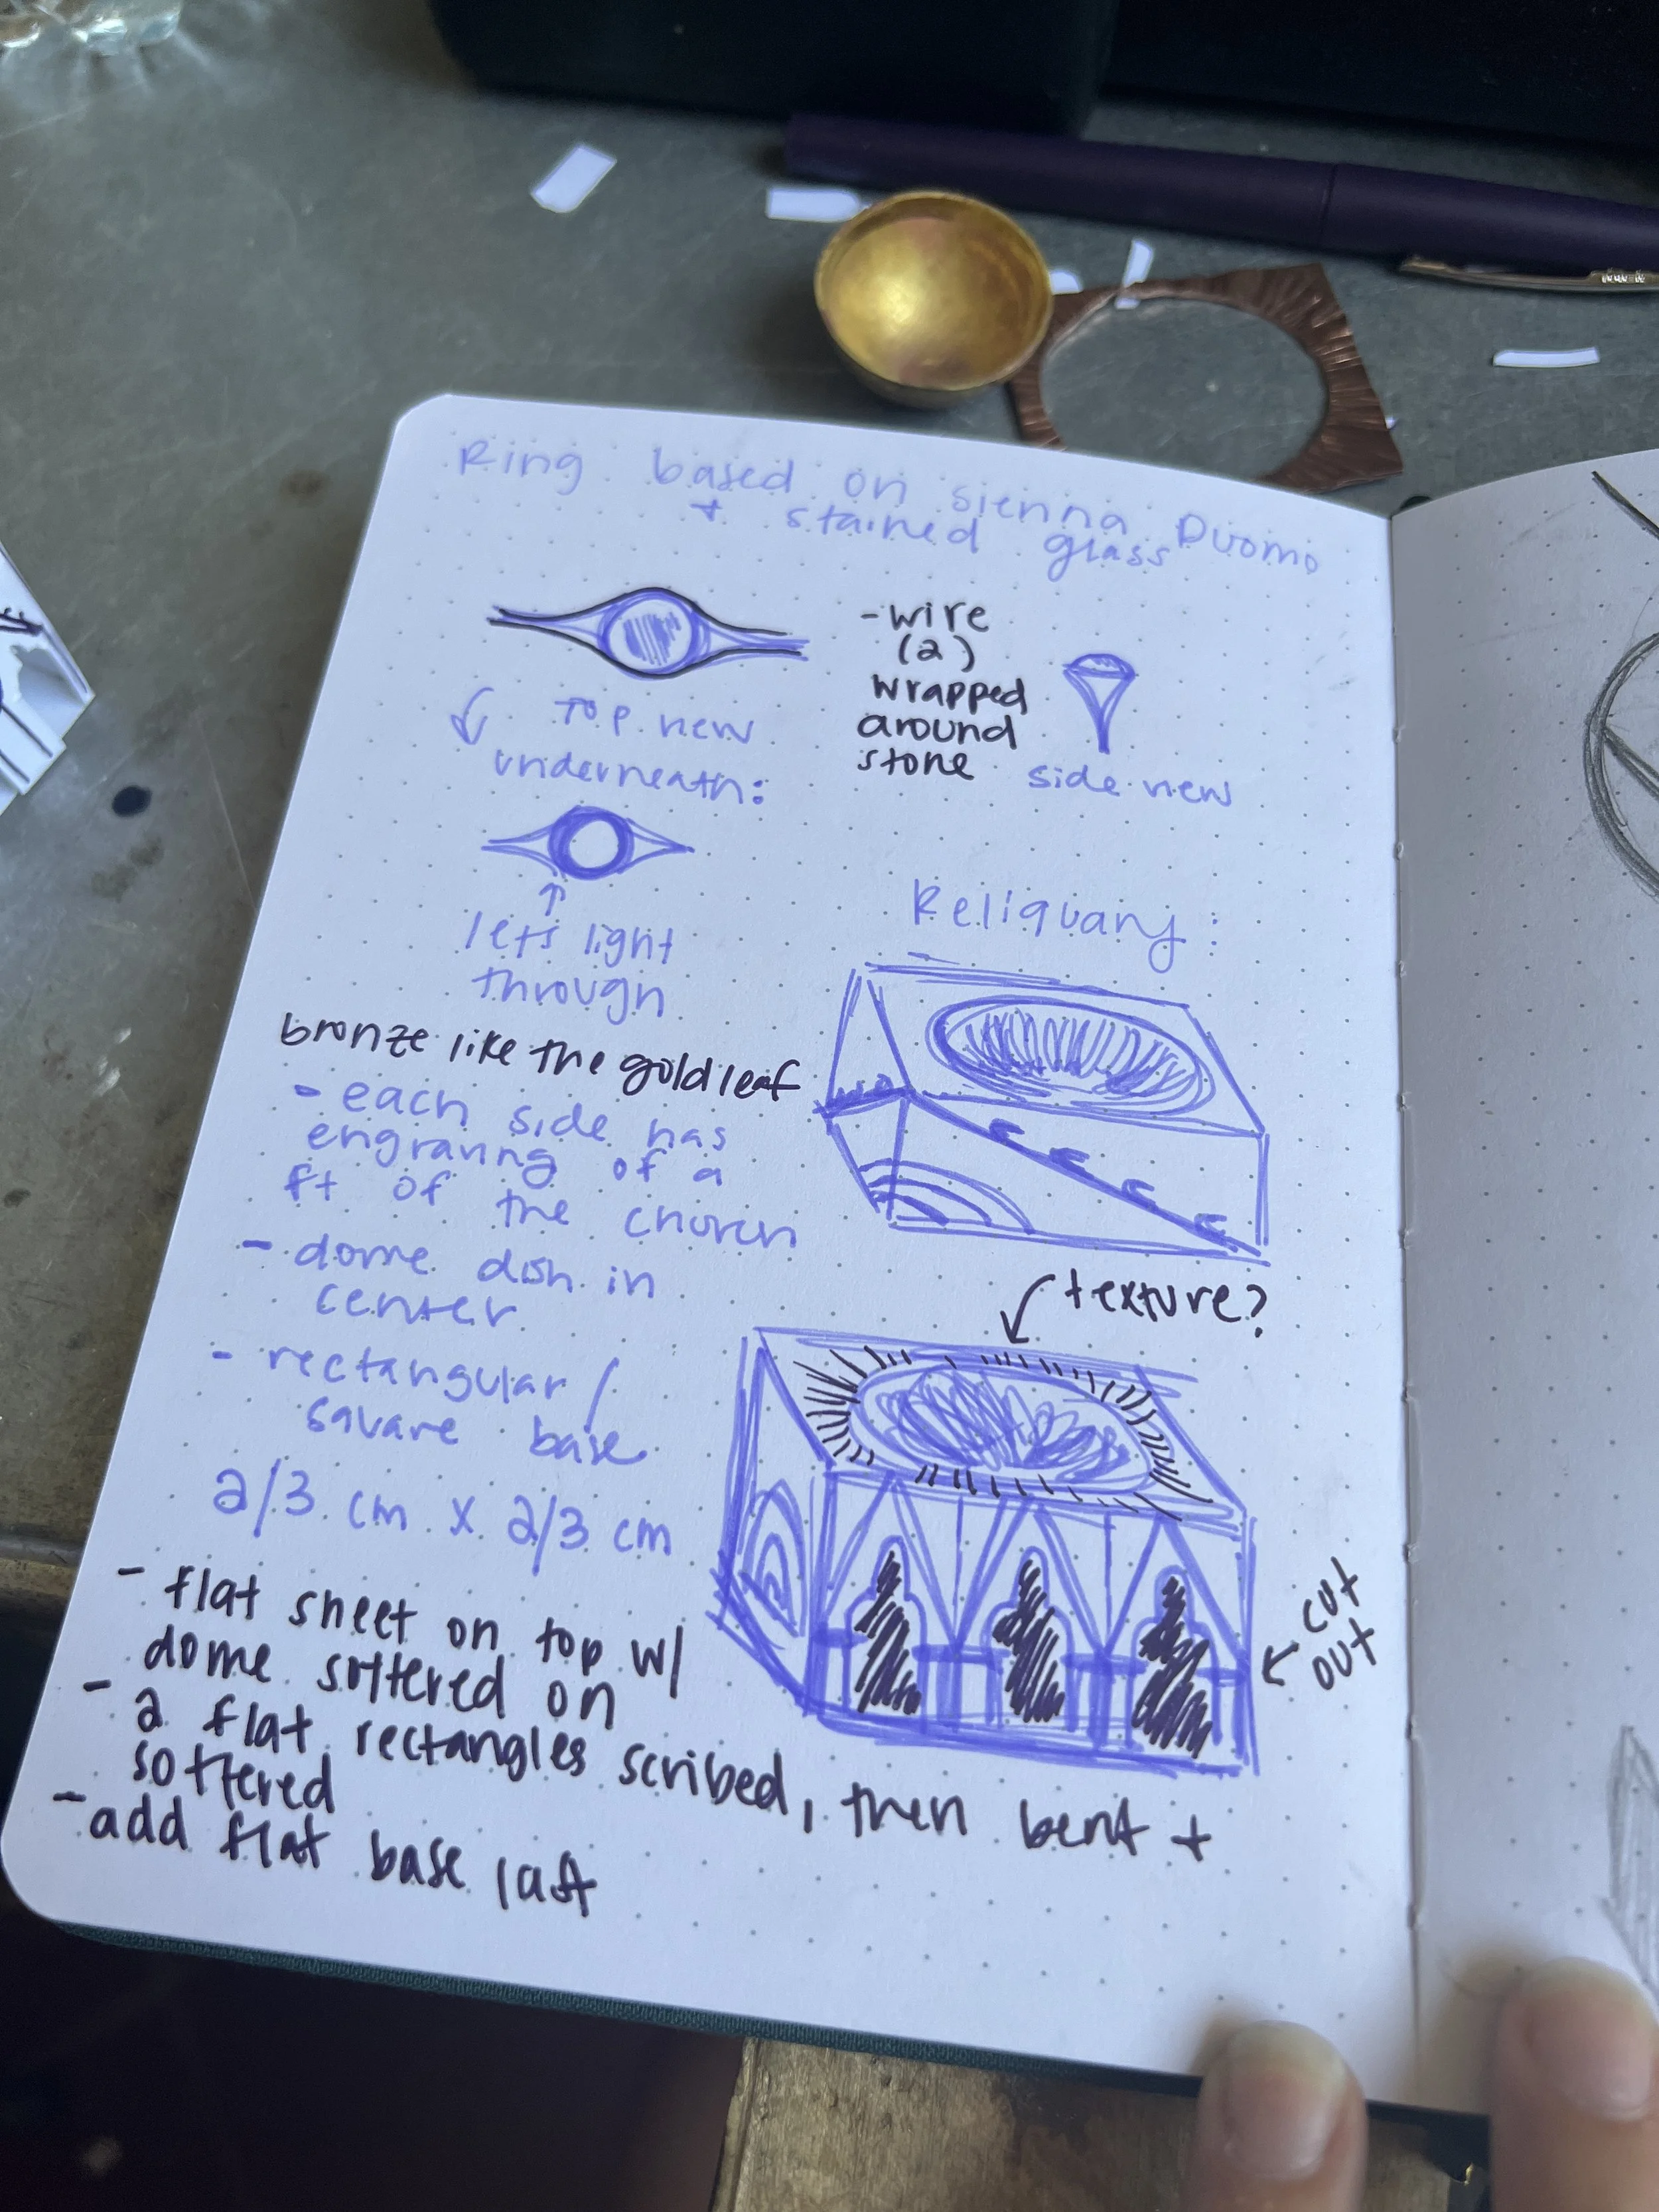 Ring based on sienna Duomo
+ stained glass
-wire
(2)
wrapped
around
stone
Top view
side view
underneath:
lets light
through
Reliquary:
bronze like the gold leaf
- each side has
engraving of a
ft of the church
- dome dish in
center
- rectangular/
square base
2/3 cm x 2/3 cm
texture?
cut
out
- flat sheet on top w/
dome sottered on
- 2 flat rectangles scribed, then bent +
sottered
- add flat base last